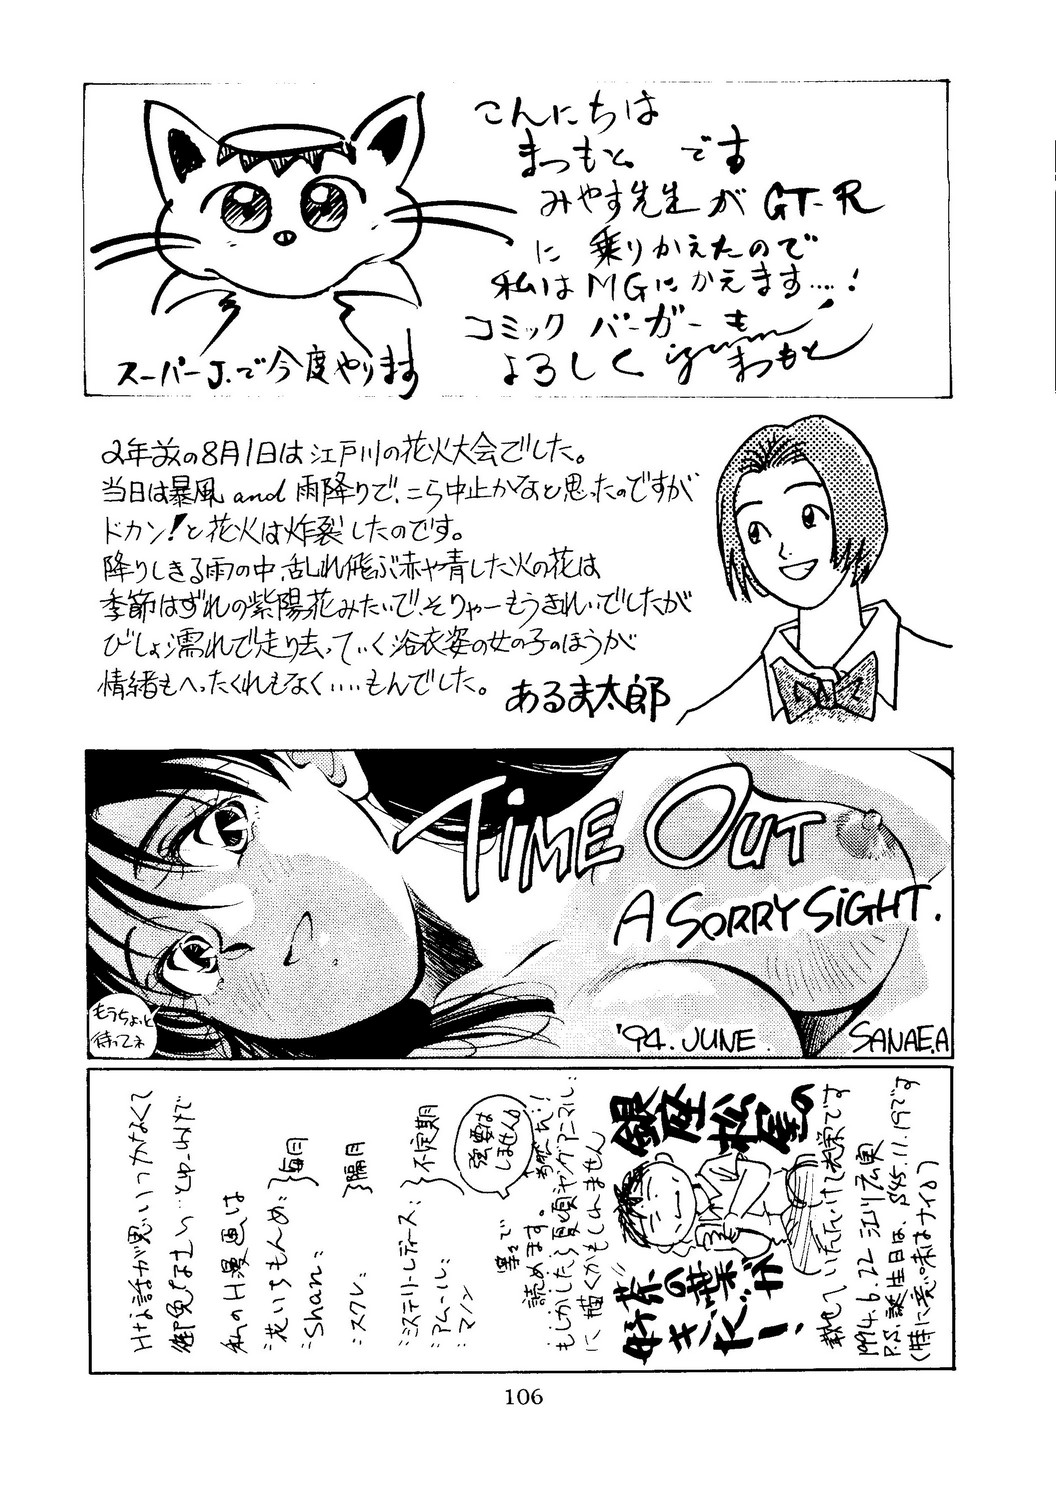 こんにちは
まつもと。です
みやす先生がGT-R
に乗りかえたので
私はMGにかえます…!
コミックバーガーも
よろしく
まつもと
スーパーJ.で今度やります
2年前の8月1日は江戸川の花火大会でした。
当日は暴風and雨降りで、こら中止かなと思ったのですが
ドカン!と花火は炸裂したのです。
降りしきる雨の中、乱れ飛ぶ赤や青した火の花は
季節はずれの紫陽花みたいで、そりゃーもうきれいでしたが
びしょ濡れで走り去っていく浴衣姿の女の子のほうが
情緒もへったくれもなく‥‥もんでした。
あるま太郎
TIME OUT
A SORRY SIGHT.
もうちょっと
待ってネ
'94. JUNE.
SANAE.A
Hな話が思いつかなくて
御免なさい…とゆーわけで
私のH漫画は
花いちもんめ: 毎月
Shan:
スクレ: 隔月
ミステリーレディース: 不定期
アムール:
マノン
強要は
しません。
等で
読めます。
もしかしたら夏頃ヤングアニマル
に描くかもしれません
銀座
松屋の
載せていただいて光栄です
1994.6.22 江川広実
P.S.誕生日は、S45.11.19です
(特に意味はナイよ)
106